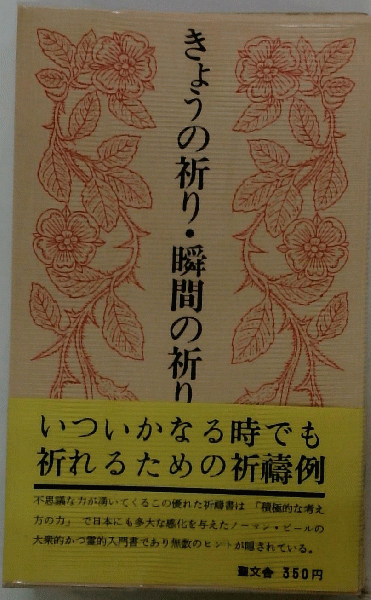 きょうの祈り・瞬間の祈り
いついかなる時でも
祈れるための祈禱例
不思議な力が湧いてくるこの優れた祈禱書は「積極的な考え
方の力」で日本にも多大な感化を与えたノーマン・ピールの
大衆的かつ霊的入門書であり無数のヒントが隠されている。
聖文舎 350円